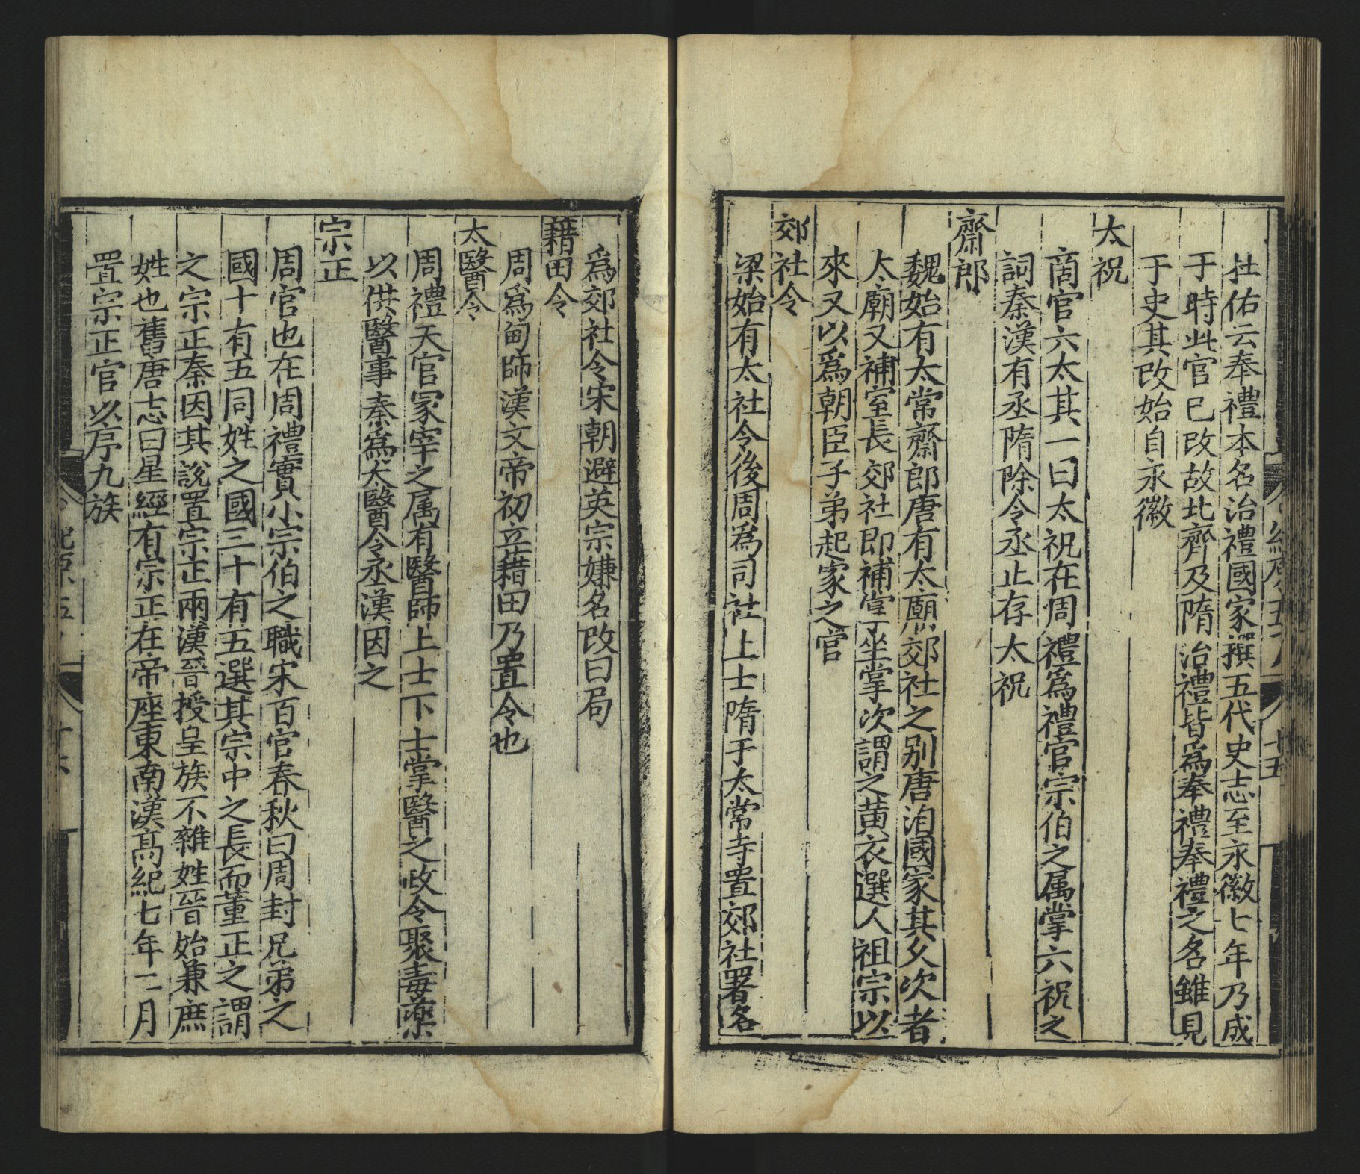 杜佑云奉禮本名治禮國家撰五代史志至永徽七年乃成
于時此官已改故北齊及隋治禮皆爲奉禮奉禮之名雖見
于史其改始自永徽
太祝
啇官六太其一曰太祝在周禮爲禮官宗伯之属掌六祝之
詞秦漢有丞隋除令丞止存太祝
齋郎
魏始有太常齋郎唐有太廟郊社之别唐洎國家其久次者
太廟又補室長郊社即補掌坐掌次謂之黄衣選人祖宗以
來又以爲朝臣子弟起家之官
郊社令
梁始有太社令後周爲司社上士隋于太常寺置郊社署名
爲郊社令宋朝避英宗嫌名改曰局
藉田令
周爲甸師漢文帝初立藉田乃置令也
太醫令
周禮天官冢宰之属有醫師上士下士掌醫之政令聚毒藥
以供醫事秦爲太醫令丞漢因之
宗正
周官也在周禮實小宗伯之職宋百官春秋曰周封兄弟之
國十有五同姓之國三十有五選其宗中之長而董正之謂
之宗正秦因其說置宗正兩漢晉授皇族不雜姓晉始兼庶
姓也舊唐志曰星經有宗正在帝座東南漢髙紀七年二月
置宗正官以序九族